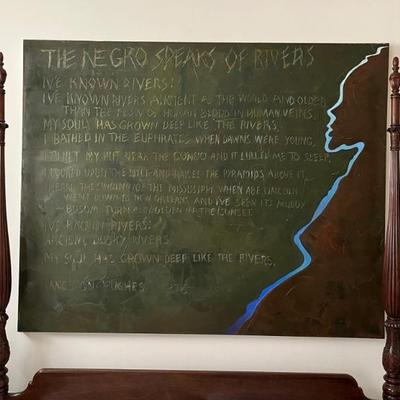 THE NEGRO SPEAKS OF RIVERS
I'VE KNOWN RIVERS:
I'VE KNOWN RIVERS ANCIENT AS THE WORLD AND OLDER
THAN THE FLOW OF HUMAN BLOOD IN HUMAN VEINS.
MY SOUL HAS GROWN DEEP LIKE THE RIVERS.
I BATHED IN THE EUPHRATES WHEN DAWNS WERE YOUNG.
I BUILT MY HUT NEAR THE CONGO AND IT LULLED ME TO SLEEP.
I LOOKED UPON THE NILE AND RAISED THE PYRAMIDS ABOVE IT.
I HEARD THE SINGING OF THE MISSISSIPPI WHEN ABE LINCOLN
WENT DOWN TO NEW ORLEANS, AND I'VE SEEN ITS MUDDY
BOSOM TURN ALL GOLDEN IN THE SUNSET.
I'VE KNOWN RIVERS:
ANCIENT, DUSKY RIVERS.
MY SOUL HAS GROWN DEEP LIKE THE RIVERS.
LANGSTON HUGHES